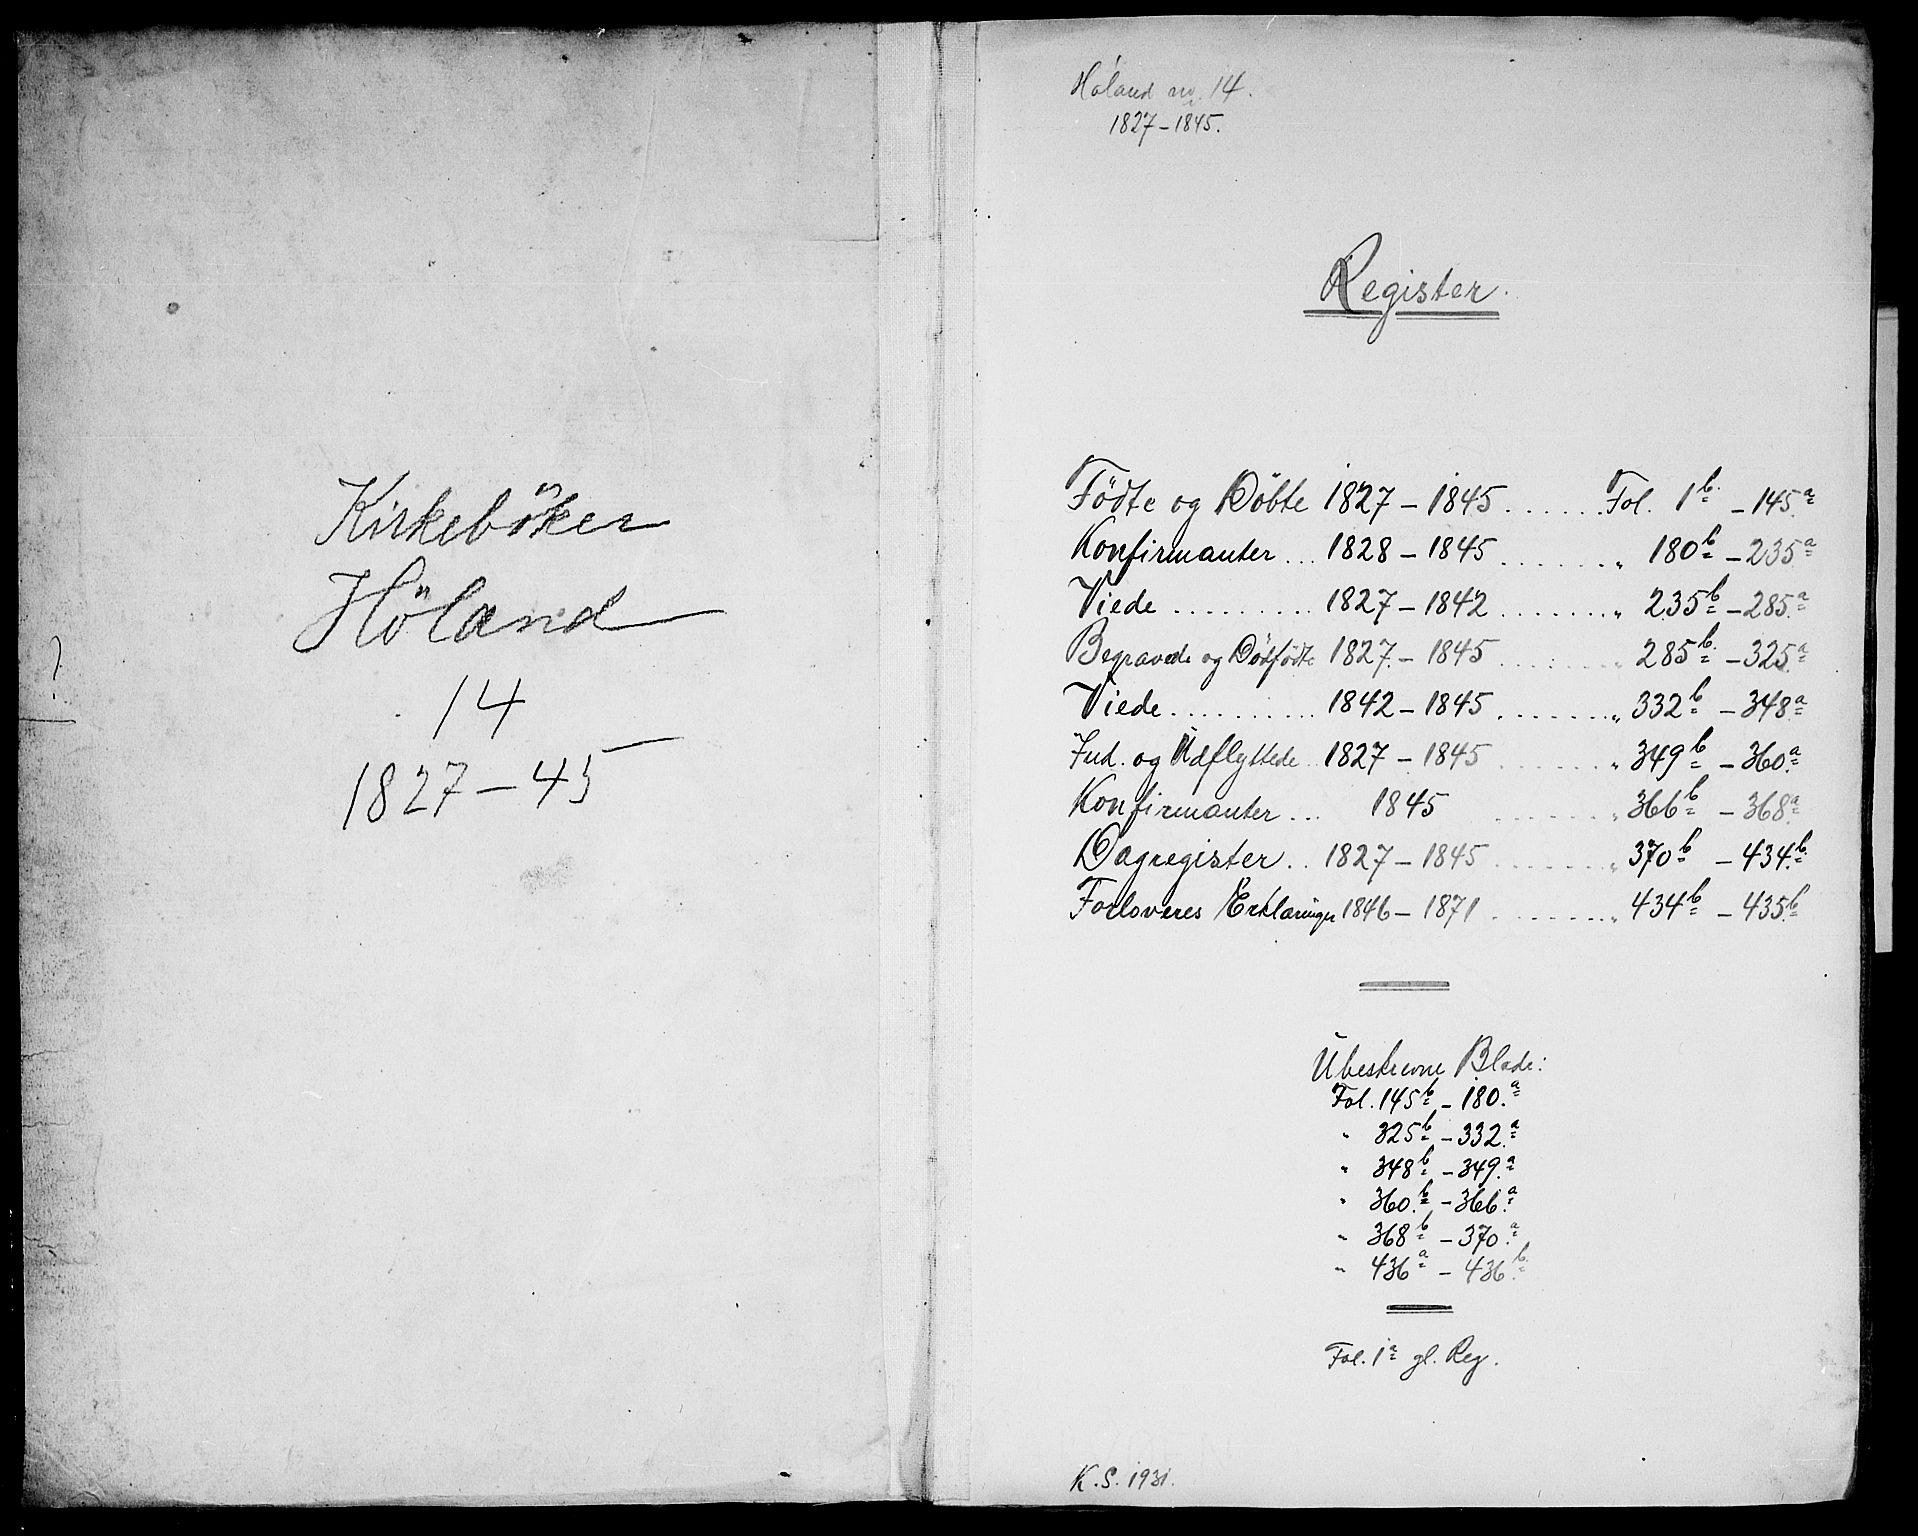 Kirkeböker
Höland
14
1827-45
?
Höland no. 14.
1827-1845.
Register.
Födte og Döbte 1827 - 1845 ...... Fol. 1b. - 145.a
Konfirmanter ... 1828 - 1845 ....... " 180b - 235a
Viede .......... 1827 - 1842 ........ " 235b - 285.a
Begravede og Dödfödte 1827. - 1845 ....... " 285b. - 325.a
Viede .......... 1842 - 1845 ........ " 332b - 348a
Ind. og Udflyttede 1827 - 1845 ....... " 349b - 360.a
Konfirmanter ... 1845 ....... " 366b - 368.a
Dagregister .. 1827 - 1845 ....... " 370b - 434.b
Forloveres Erklæringer 1846 - 1871 ....... " 434b - 435.b
Ubeskrevne Blade:
Fol. 145b - 180.a
" 325b - 332.a
" 348b - 349.a
" 360.b - 366.a
" 368b - 370.a
" 436a - 436.b
Fol. 1a gl. Reg.
K.S. 1931.